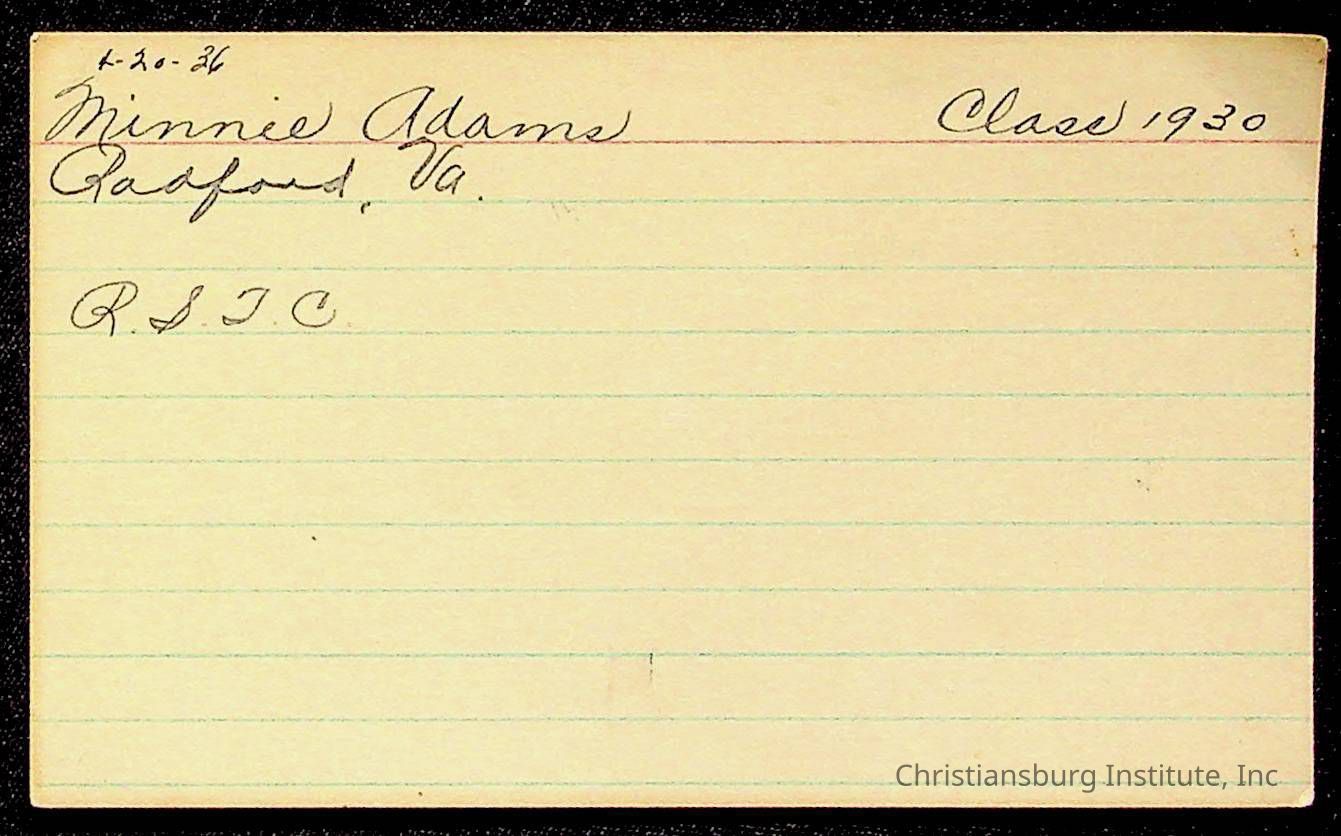 4-20-36
Minnie Adams Class 1930
Radford, Va.
R. S. T. C.
Christiansburg Institute, Inc